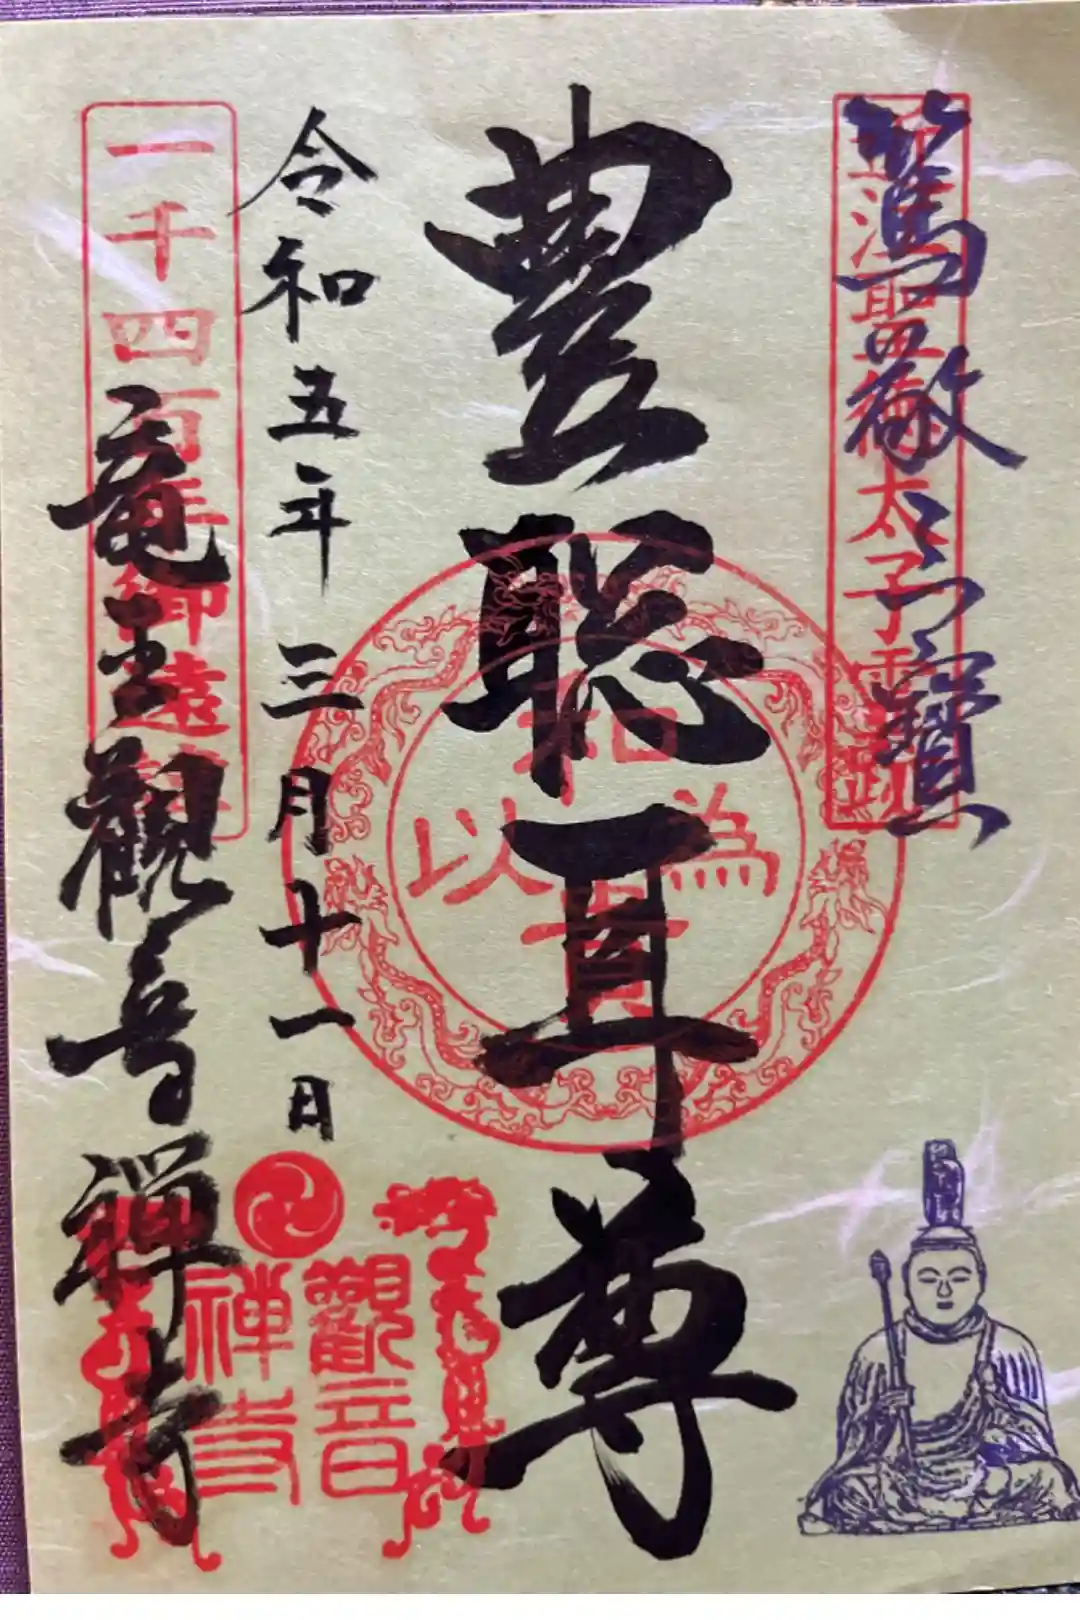 篤敬三寶
聖徳太子霊跡
豊聡耳尊
和
以為
貴
令和五年 三月十一日
一千四百年御遠忌
竜王観音禅寺
觀音
禅寺